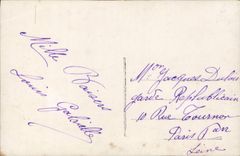 Mille Baisers
Louis Gabrielle
Mr Jacques Dubois
garde Républicain
10 Rue Tournon
Paris
Seine